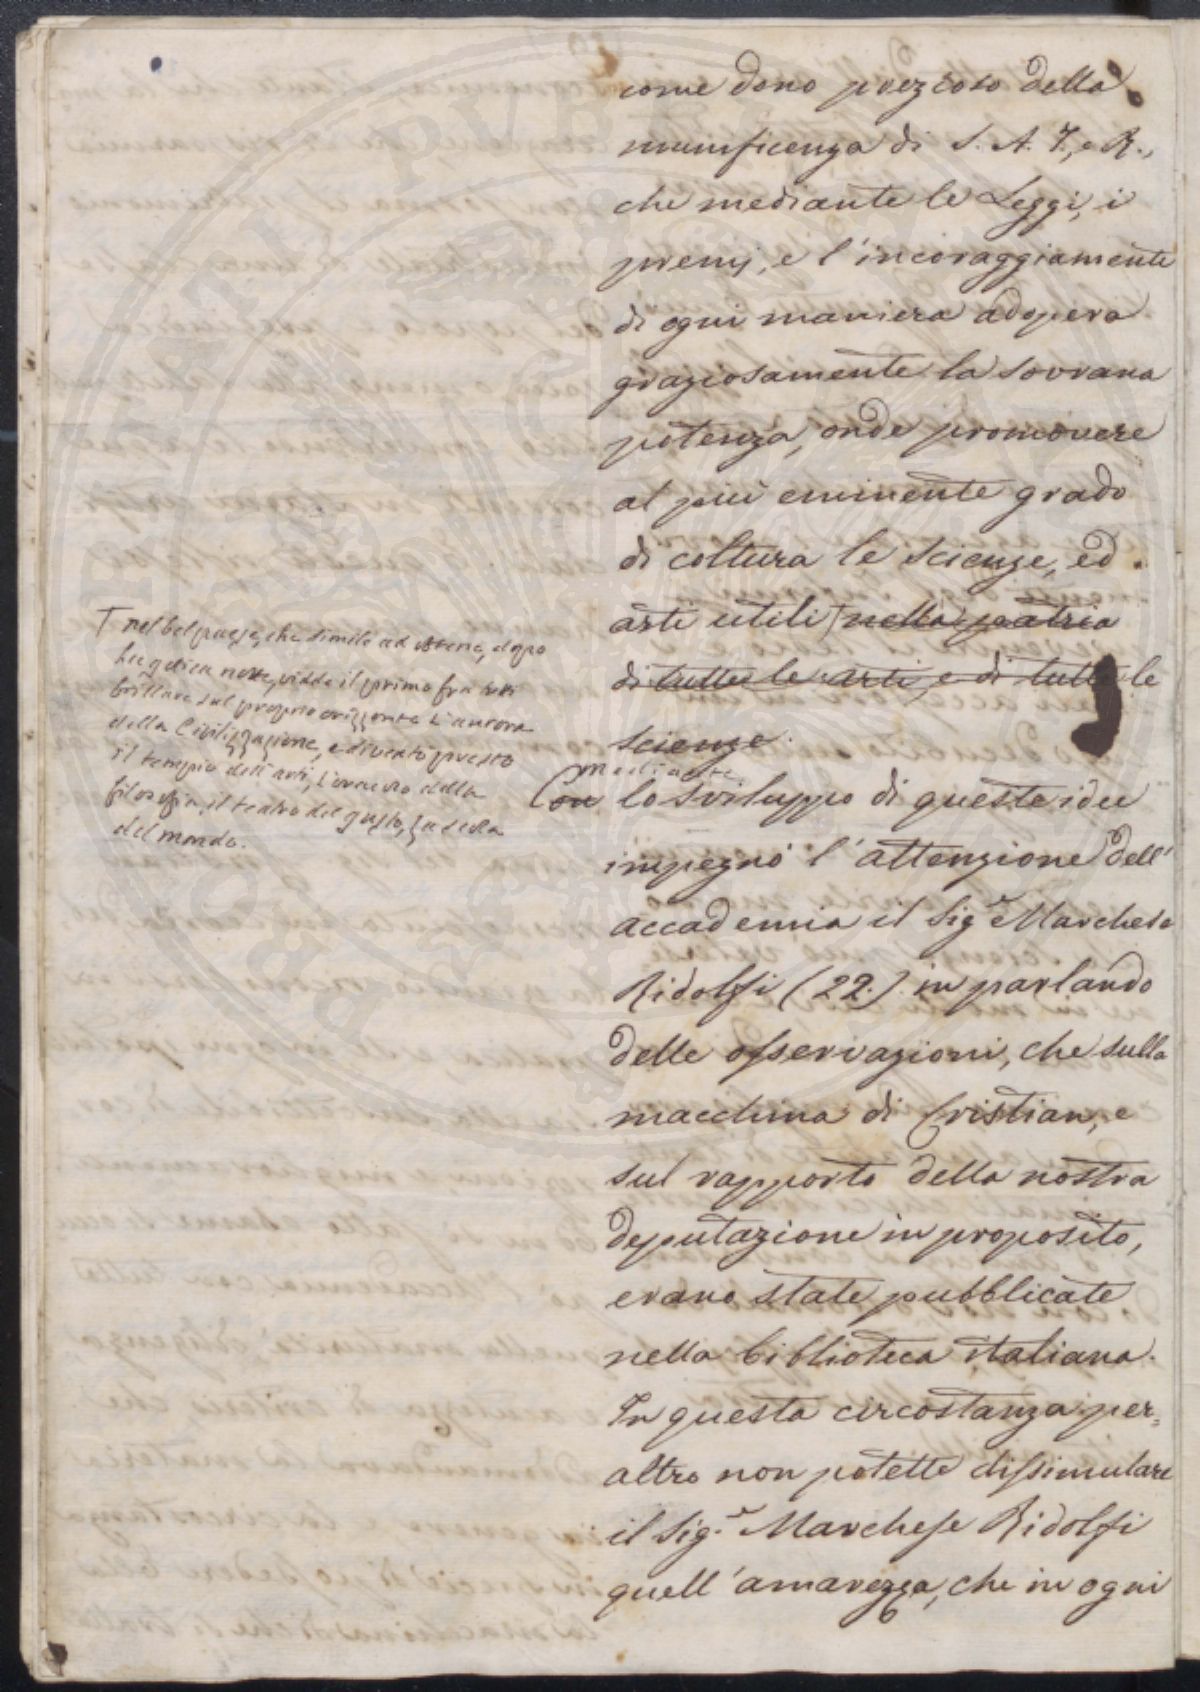 come dono prezioso della
munificenza di S. A. I, e R.,
che mediante le Leggi, i
premj, e l'incoraggiamente
di ogni maniera adopera
graziosamente la sovrana
potenza, onde promovere
al più eminente grado
di coltura le scienze, ed
arti utili nella patria
di tutte le arti, e di tutte le
scienze.
Con mediante lo sviluppo di queste idee
impegnò l'attenzione dell'
accademia il Sig.e Marchese
Ridolfi (22.) in parlando
delle osservazioni, che sulla
macchina di Cristian, e
sul rapporto della nostra
deputazione in proposito,
erano state pubblicate
nella biblioteca italiana.
In questa circostanza per=
altro non potette dissimulare
il Sig.e Marchese Ridolfi
quell'amarezza, che in ogni
nel bel paese, che simile ad Atene, dopo
notte, vidde il primo fra tutti
brillare sul proprio orizzonte l'aurora
della Civilizzazione, e diventò presto
il tempio dell'arti, della
filosofia, il teatro del gusto, la scuola
del mondo.